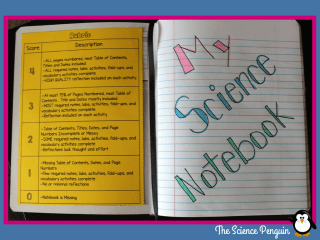 Rubric
Score
Description
4
-ALL pages numbered, neat Table of Contents, Titles and Dates included
-ALL required notes, labs, activities, fold-ups, and vocabulary activities complete
-HIGH QUALITY reflection included on each activity
3
-At most
of Pages Numbered, neat Table of Contents, Title and Dates mostly included
-MOST required notes, labs, activities, fold-ups, and vocabulary activities complete
-Reflection included on each activity
2
-Table of Contents, Titles, Dates, and Page Numbers Incomplete or Messy
-SOME required notes, labs, activities, fold-ups, and vocabulary activities complete
-Reflections lack thought and effort
1
-Missing Table of Contents, Dates, and Page Numbers
-Few required notes, labs, activities, fold-ups, and vocabulary activities complete
-No or minimal reflections
0
-Notebook is Missing
My
Science
Notebook
The Science Penguin